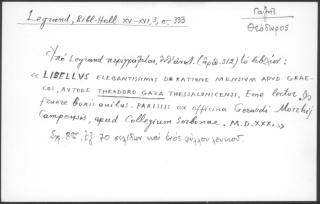 Legrand, Bibl. Hell. XV-XVI, 3, σ. 333
Γαζῆ
Θεόδωρος
Ὑπὸ Legrand περιγράφεται, ἐνθ' ἀνωτ. (ἀριθ. 312) τὸ βιβλίον:
« LIBELLUS ELEGANTISSIMUS DE RATIONE MENSIUM APUD GRAE-
COS, AUTORE THEODORO GAZA THESSALONICENSI. Eme lector, &
fruere bonis avibus. PARISIIS ex officina Gerardi Morrhij
Campensis, apud Collegium Sorbonae. M.D.XXX. »
Σχ. 8ον ἐξ 70 σελίδων καὶ ἑνὸς φύλλου λευκοῦ.